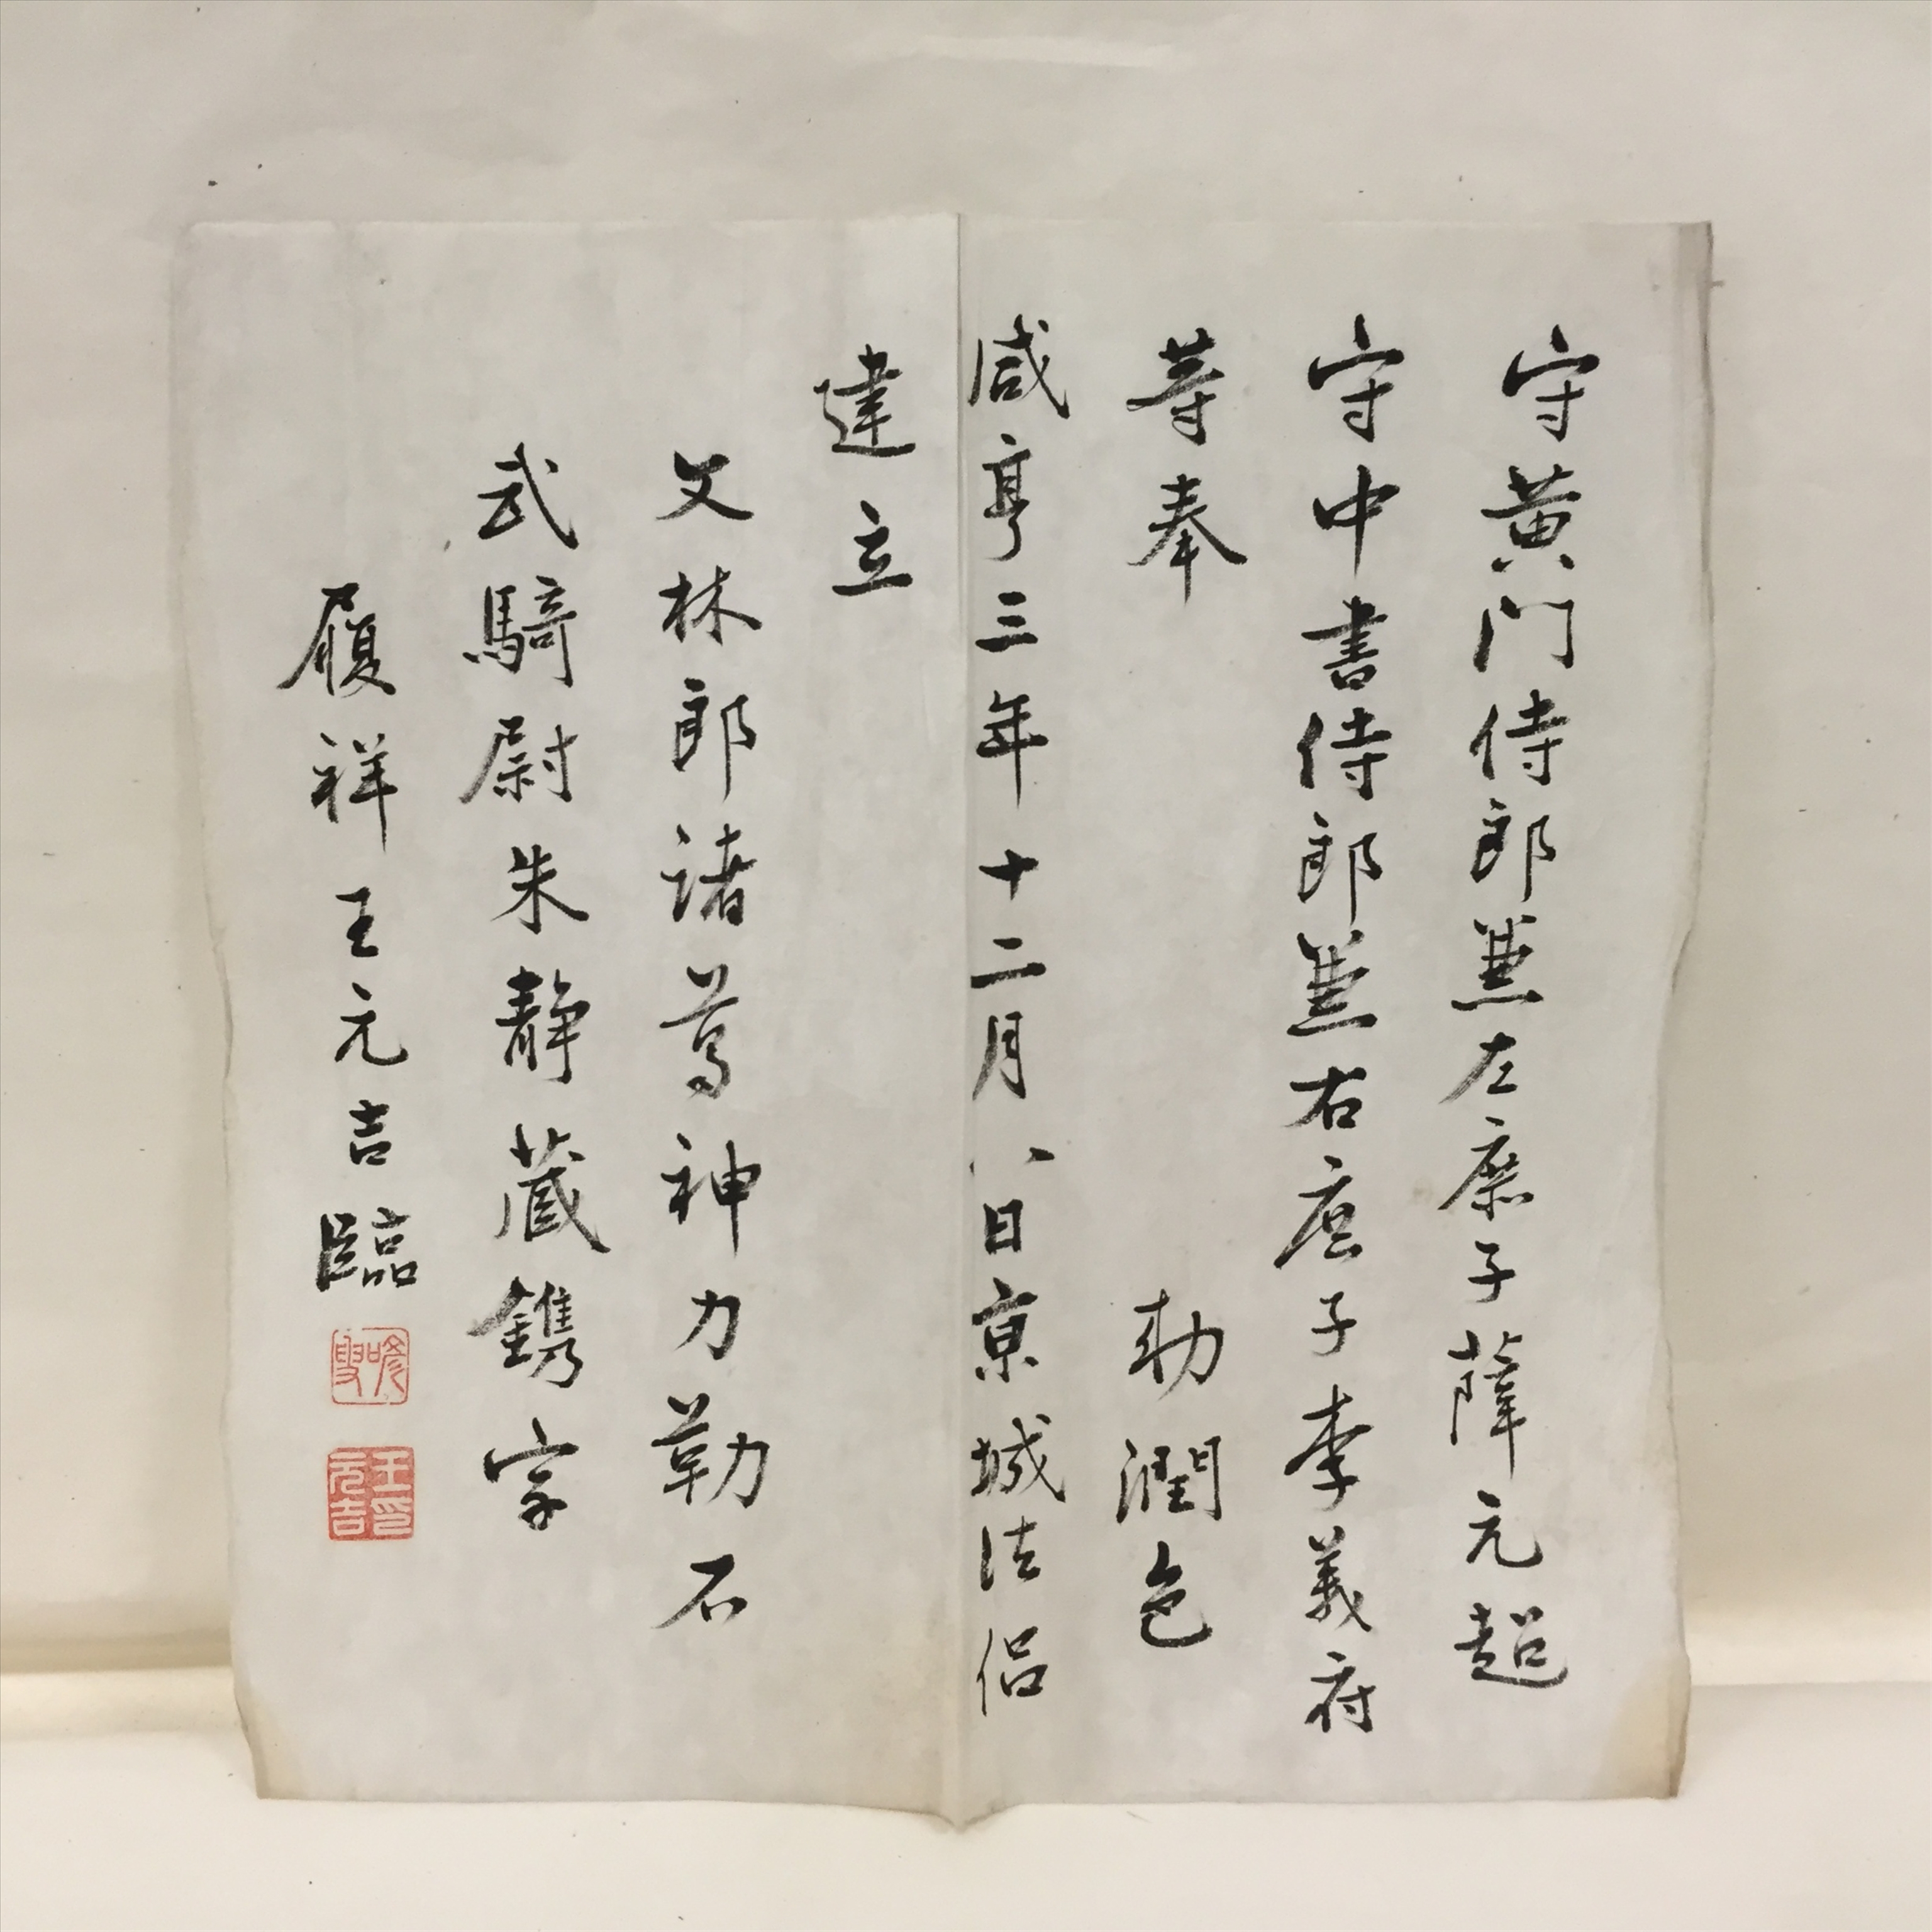 守黄门侍郎兼左庶子薛元超
守中書侍郎兼右庶子李義府
等奉 勅潤色
咸亨三年十二月八日京城法侣
建立
文林郎諸葛神力勒石
武騎尉朱静藏鐫字
履祥王元吉臨
王元吉印